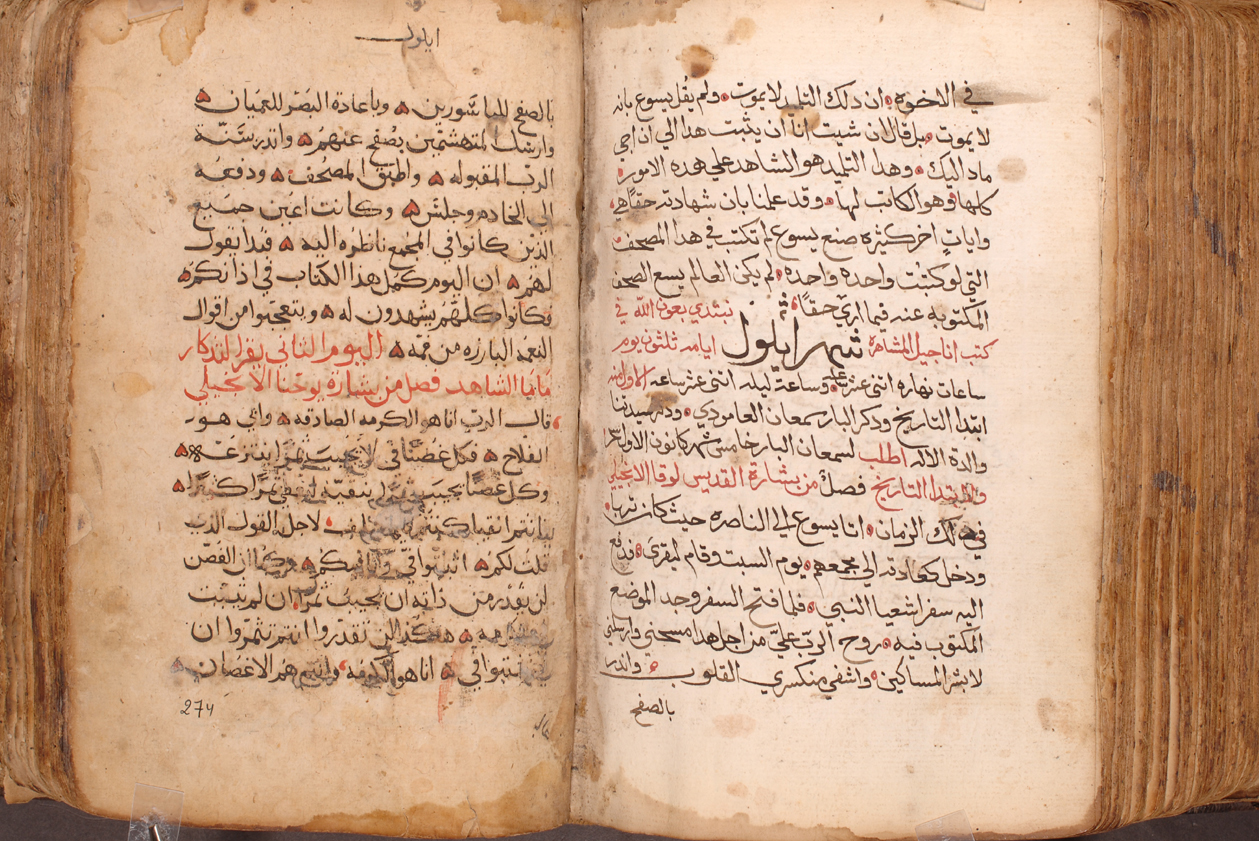 في الاخوه ان دلك التلميد لا يموت ولم يقل يسوع بانه
لا يموت بل قال ان شيت انا ان يثبت هدا الي ان اجي
ماد اليك وهدا التلميد هو الشاهد علي هده الامور
كلها وهو الكاتب لها وقد علمنا بان شهادته حقا هي
وايات اخر كثيره صنع يسوع لم تكتب في هدا المصحف
التي لو كتبت واحده واحده لم يكن العالم يسع الصحف
المكتوبه عنه فيما اري حقا نبتدي بعون الله في
كتب اناجيل المشاهره شهر ايلول ايامه ثلثون يوم
ساعات نهاره اثني عشر وساعة ليله اثني عشر ساعه الاول منه
ابتدا التاريخ ودكر البار سمعان العامودي
والدة الاله اطلب لسمعان البار خامس شهر كانون الاول
ابتدا التاريخ فصل من بشارة القديس لوقا الانجيلي
في دلك الزمان اتا يسوع الي الناصره حيث كان تربا
ودخل كعادته الي مجمعهم يوم السبت وقام ليقرى فدفع
اليه سفر اشعيا النبي فلما فتح السفر وجد الموضع
المكتوب فيه روح الرب علي من اجل هدا مسحني وارسلني
لابشر المساكين واشفي منكسري القلوب واندر
بالصفح
ايلول
بالصفح للماسورين وباعادة البصر للعميان
وارسل المتهشمين بصفح عنهم واندر بسنة
الرب المقبوله واطبق المصحف ودفعه
الى الخادم وجلس وكانت اعين جميع
الدين كانوا في المجمع ناظره اليه فبدا يقول
لهم ان اليوم كمل هدا الكتاب في اذانكم
فكانوا كلهم يشهدون له ويتعجبوا من اقوال
النعمه البارزه من فمه اليوم الثاني يقرا لتدكار
ماما الشاهد فصل من بشارة يوحنا الانجيلي
قال الرب انا هو الكرمه الصادقه وابي هو
الفلاح فكل غصنا في لا يجيب ثمرا ينتزعه
وكل غصنا يجيب ثمرا ينقيه ثمرا كثيرا
انتم انقيا لاجل القول الدي
قلت لكم اثبتوا في وانا فيكم وكما ان الغصن
لن يقدر من ذاته ان يجيب ثمر ان لم يثبت
هكدا لن تقدروا انتم تثمروا ان
تثبتوا في انا هو الكرمه وانتم هم الاغصان
274